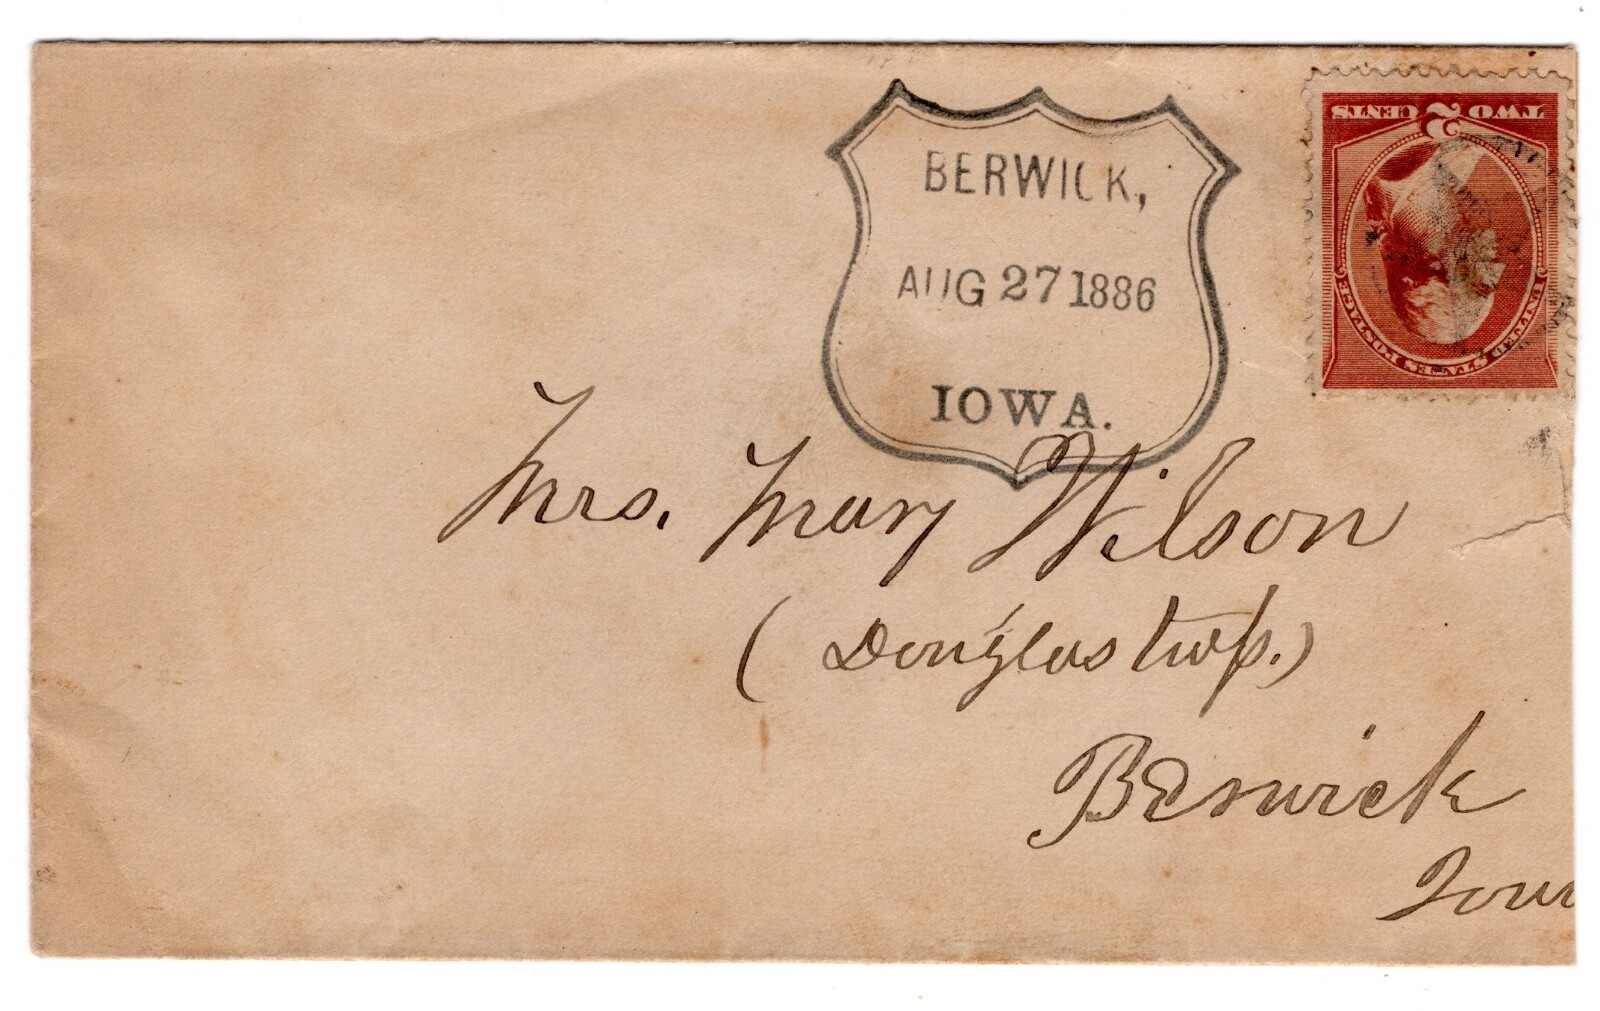 BERWICK,
AUG 27 1886
IOWA.
TWO 2 CENTS
UNITED STATES POSTAGE
Mrs. Mary Wilson
(Douglas twp.)
Berwick
Iow